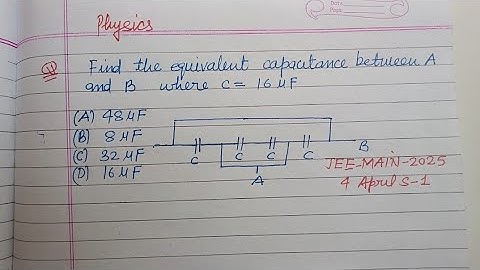 Date
Page
Physics
Q Find the equivalent capacitance between A
and B where C = 16 μF
(A) 48 μF
(B) 8 μF
(C) 32 μF
(D) 16 μF
C C C C
B
A
JEE-MAIN-2025
4 April S-1